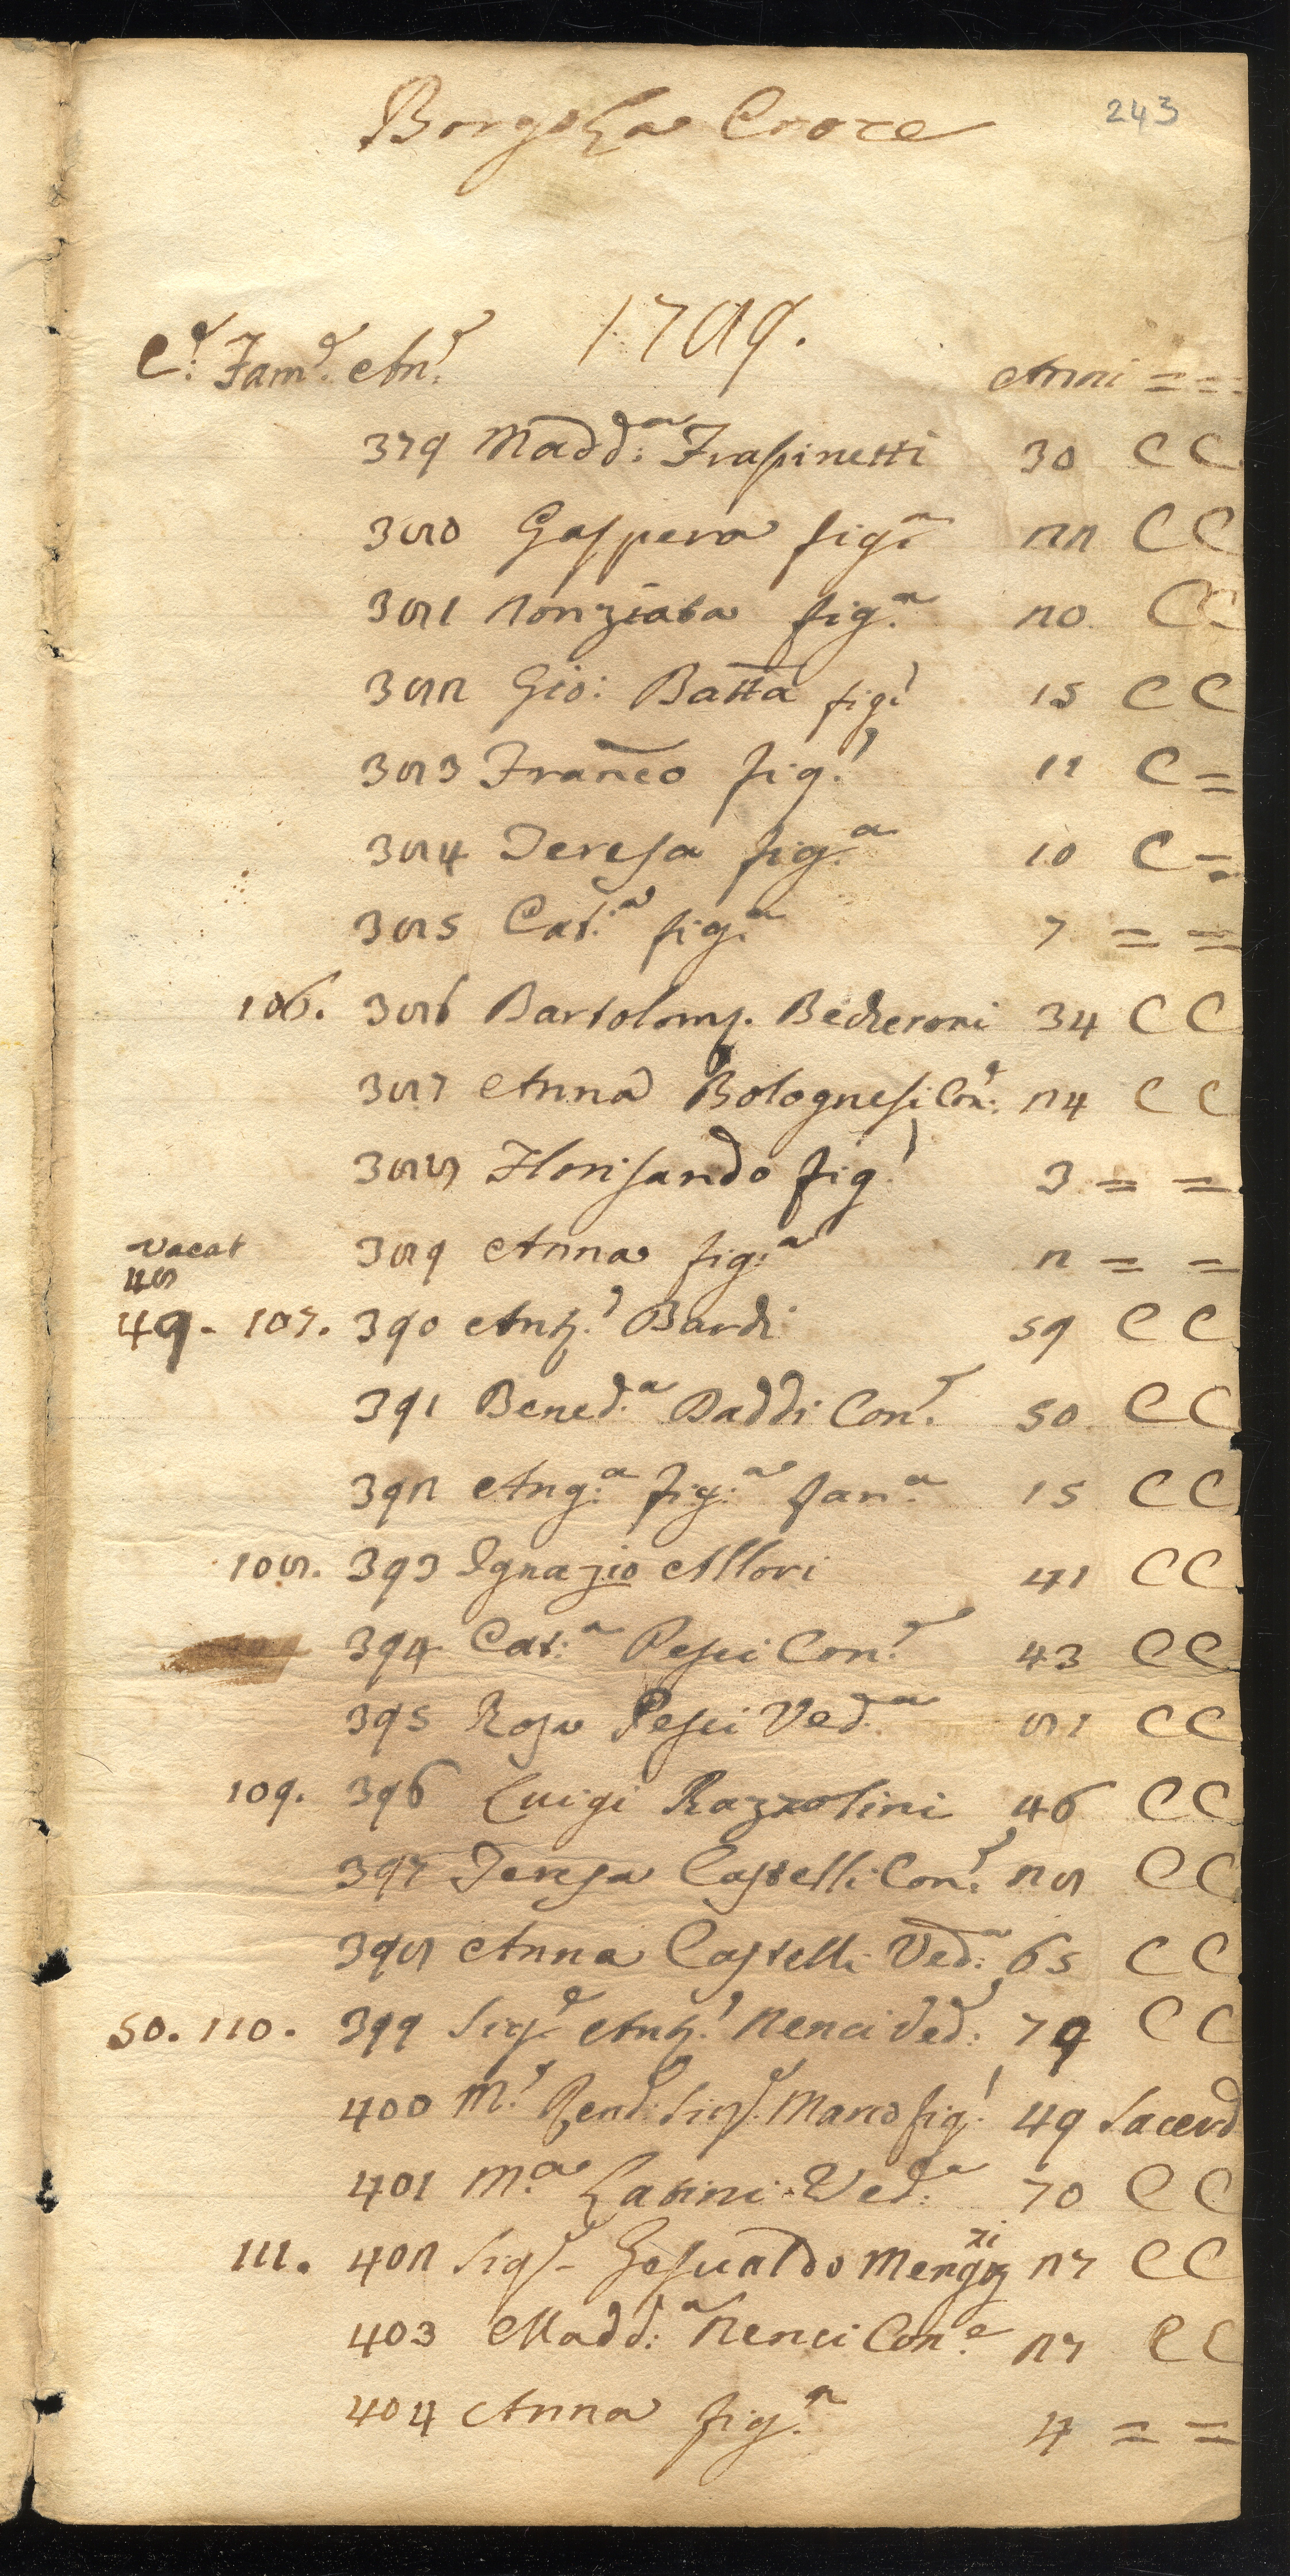 243
Borgo La Croce
1789.
C.e Fam.e An.e Anni = =
379 Madd:a Frassinetti 30 C C
380 Gaspera fig.a 22 C C
381 Nonziata fig.a 20. C C
382 Gio: Batta fig.o 15 C C
383 Franco fig.o 11 C =
384 Teresa fig.a 10 C =
385 Cat.a fig.a 7 = =
106. 386 Bartolom. Becheroni 34 C C
387 Anna Bolognesi Con.e 24 C C
388 Florisando fig.o 3 = =
Vacat
48
389 Anna fig:a 2 = =
49. 107. 390 Ant.o Bardi 59 C C
391 Bened.a Daddi Con.e 50 C C
392 Ang.a fig.a fan.a 15 C C
108. 393 Ignazio Allori 41 C C
394 Cat:a Pesci Con.e 43 C C
395 Rosa Pesci Ved.a 81 C C
109. 396 Luigi Razzolini 46 C C
397 Teresa Castelli Con.e 28 C C
398 Anna Castelli Ved:a 65 C C
50. 110. 399 Sig.e Ant.o Nenci Ved:o 79 C C
400 M.o Rend: Sig.e Marco fig.o 49 Sacerd
401 M.a Latini Ved:a 70 C C
111. 402 Sig.e Gesualdo Mengozzi 27 C C
403 Madd:a Nenci Con.e 27 C C
404 Anna fig.a 4 = =